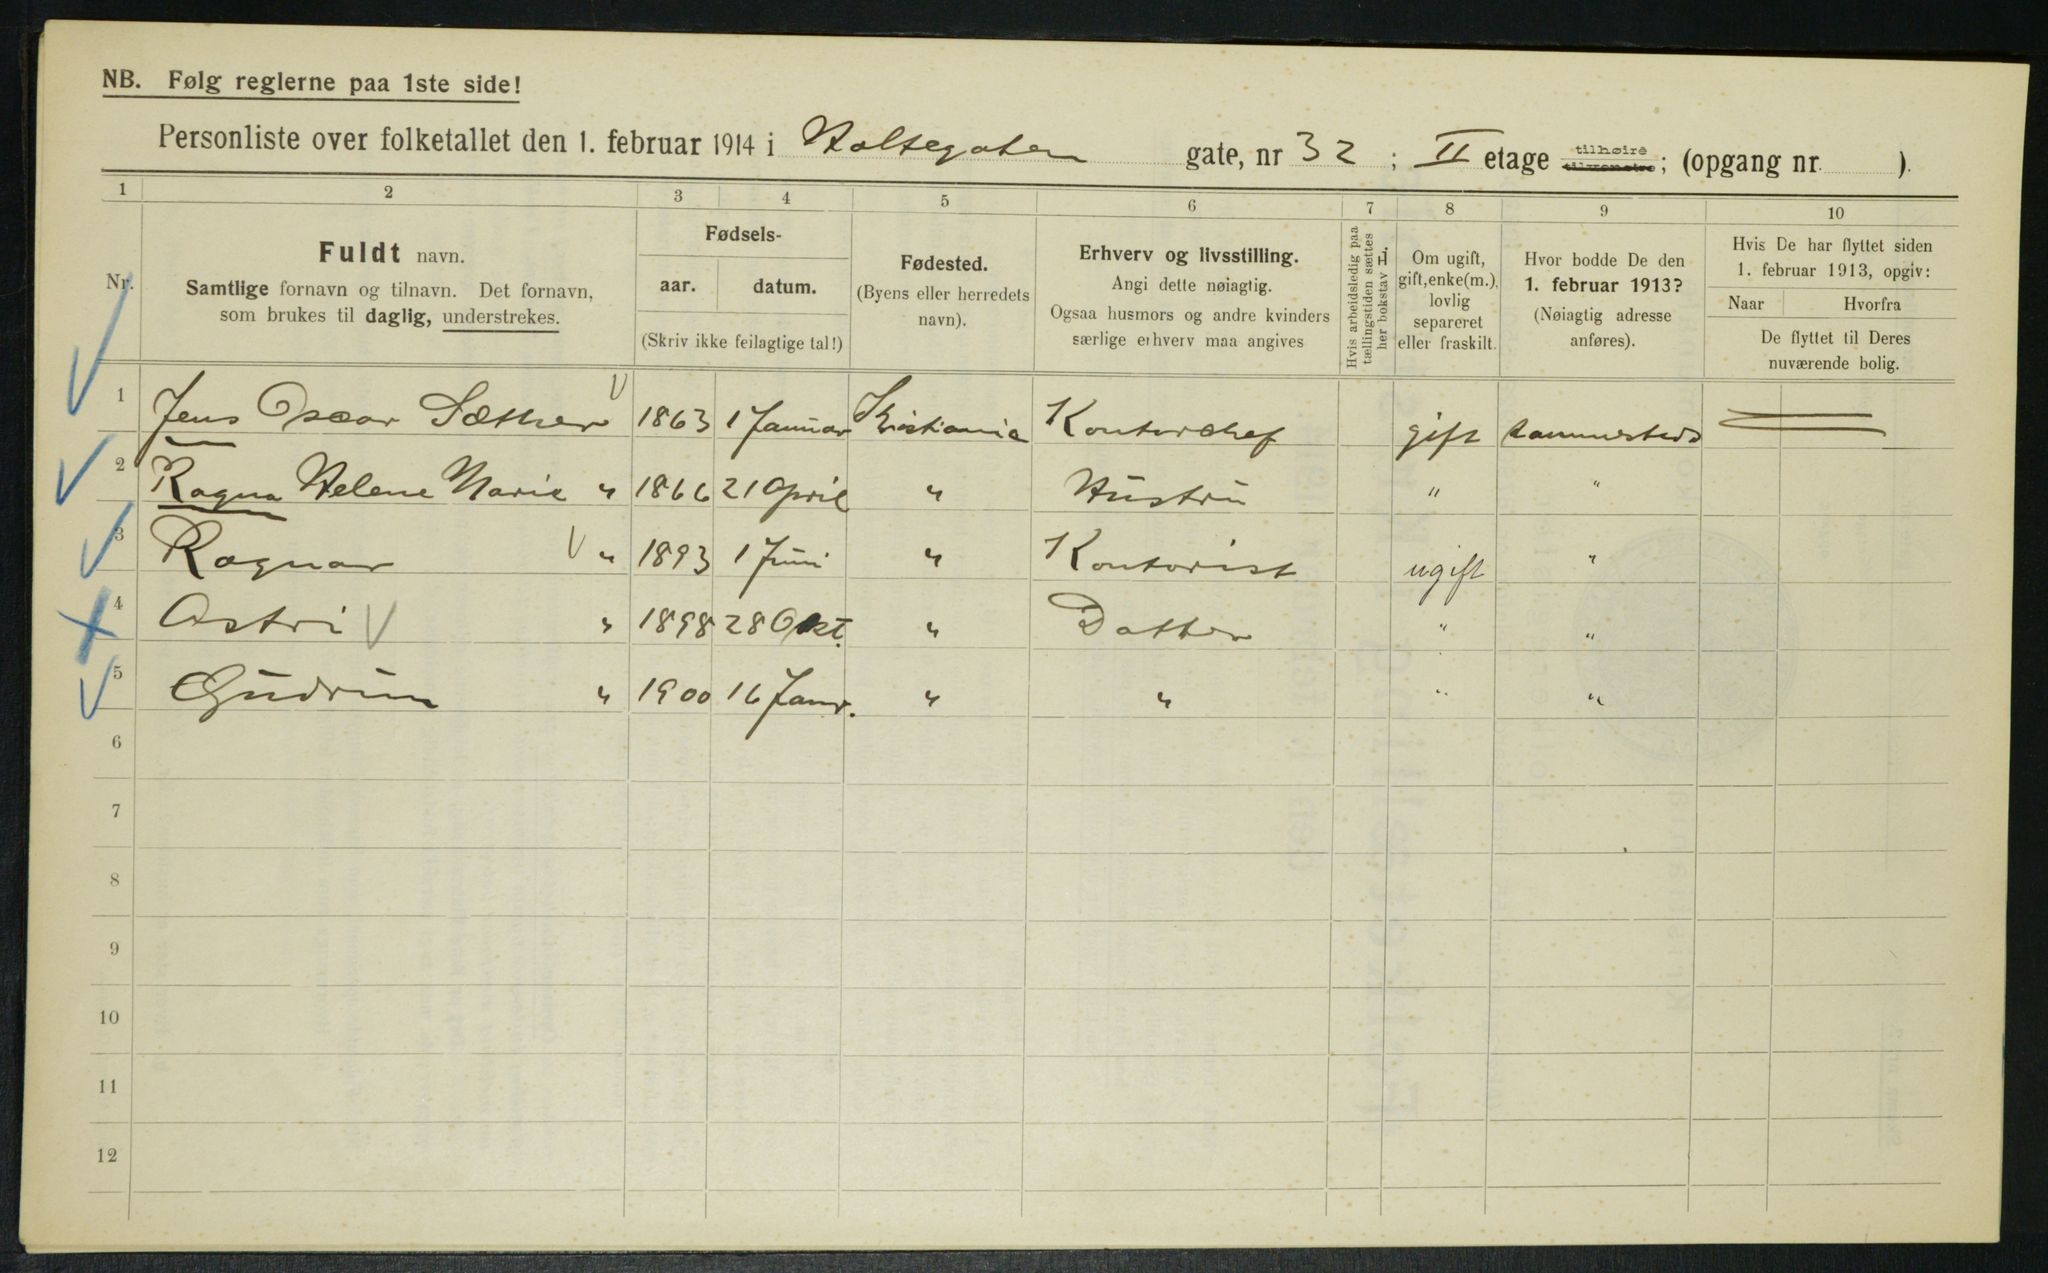 NB. Følg reglerne paa 1ste side!
Personliste over folketallet den 1. februar 1914 i Holtegaten gate, nr 32; II etage tilhøire tilvenstre; (opgang nr. ).
1 2 3 4 5 6 7 8 9 10
Nr.
Fuldt navn.
Samtlige fornavn og tilnavn. Det fornavn,
som brukes til daglig, understrekes.
Fødsels-
aar. datum.
(Skriv ikke feilagtige tal!)
Fødested.
(Byens eller herredets
navn).
Erhverv og livsstilling.
Angi dette nøiagtig.
Ogsaa husmors og andre kvinders
særlige erhverv maa angives
Hvis arbeidsledig paa
tællingstiden sættes
her bokstav L.
Om ugift,
gift, enke(m.),
lovlig
separeret
eller fraskilt.
Hvor bodde De den
1. februar 1913?
(Nøiagtig adresse
anføres).
Hvis De har flyttet siden
1. februar 1913, opgiv:
Naar Hvorfra
De flyttet til Deres
nuværende bolig.
1 Jens Oscar Sæther 1863 1 Januar Kristiania Kontorchef gift sammesteds
2 Ragna Helene Marie " 1866 21 April " Hustru " "
3 Ragnar " 1893 1 Juni " Kontorist ugift "
4 Astri " 1898 28 Okt. " Datter " "
5 Gudrun " 1900 16 Janr. " " " "
6
7
8
9
10
11
12